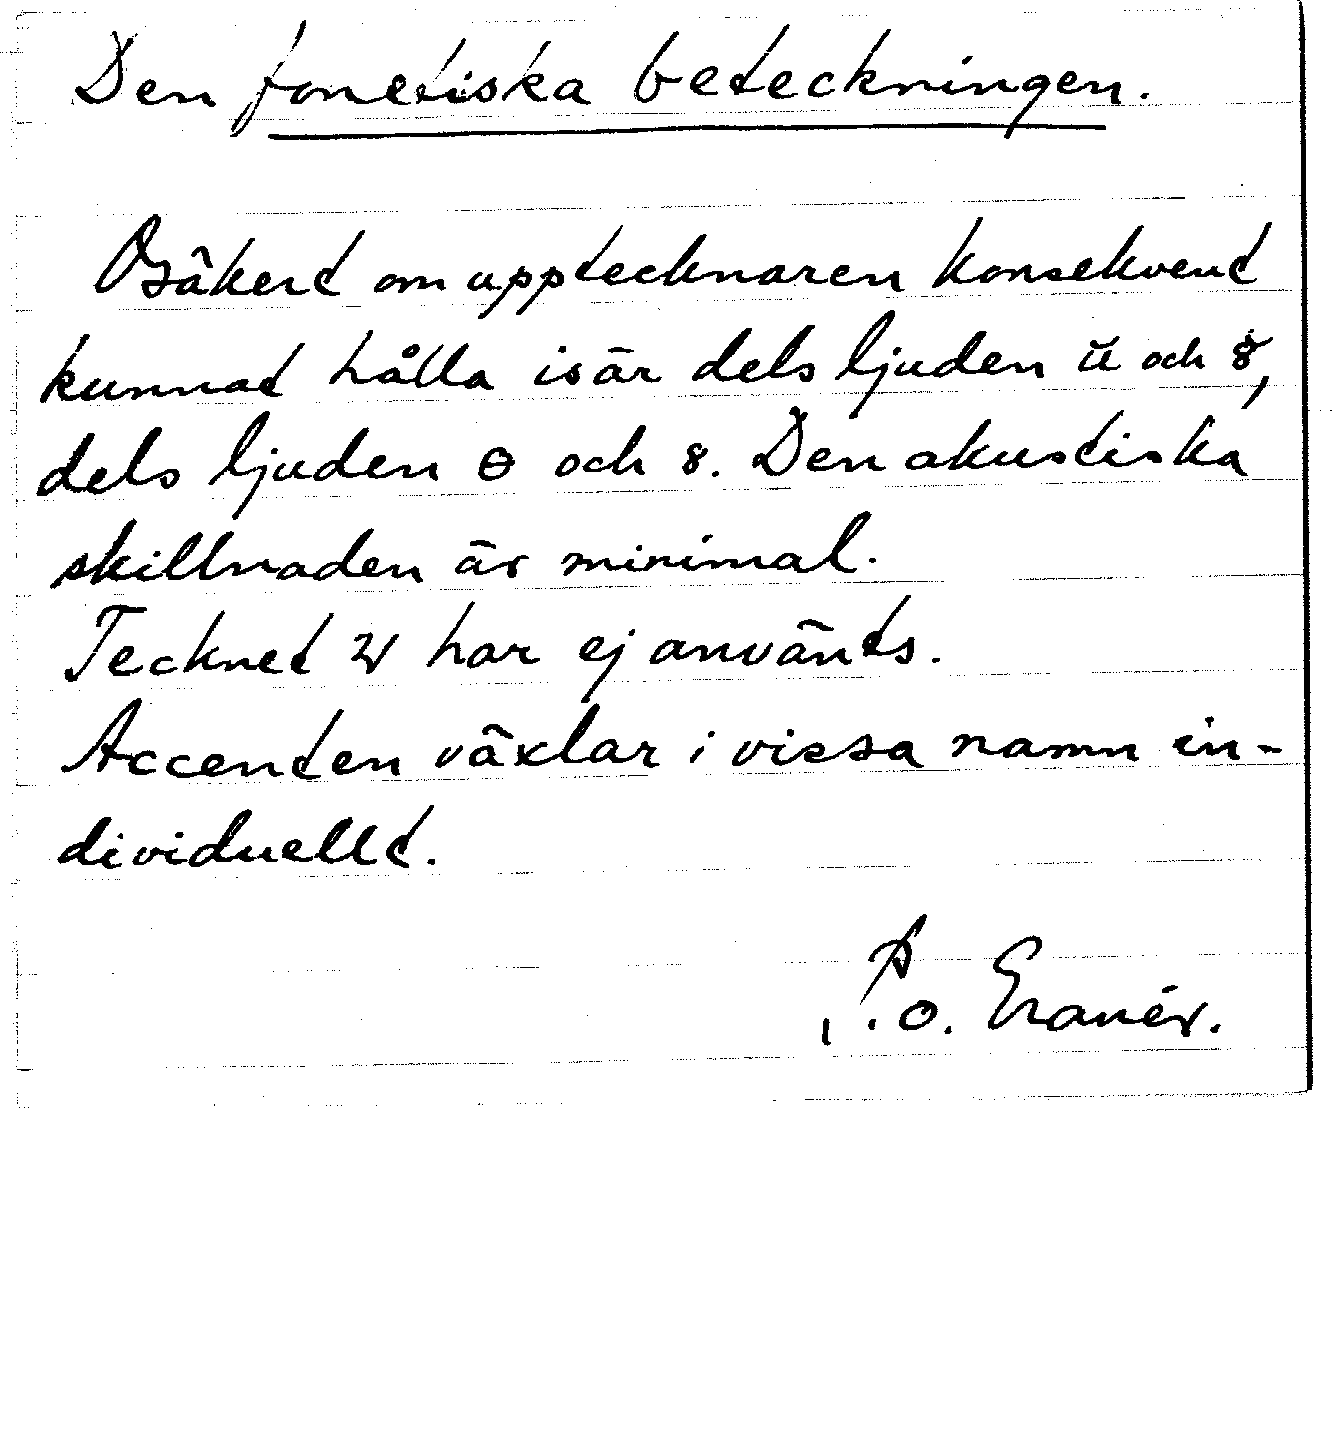 Den fonetiska beteckningen.
Osäkert om upptecknaren konsekvent
kunnat hålla isär dels ljuden ü och 8̈,
dels ljuden ɵ och 8. Den akustiska
skillnaden är minimal.
Tecknet w har ej använts.
Accenten växlar i vissa namn in-
dividuellt.
P.O.